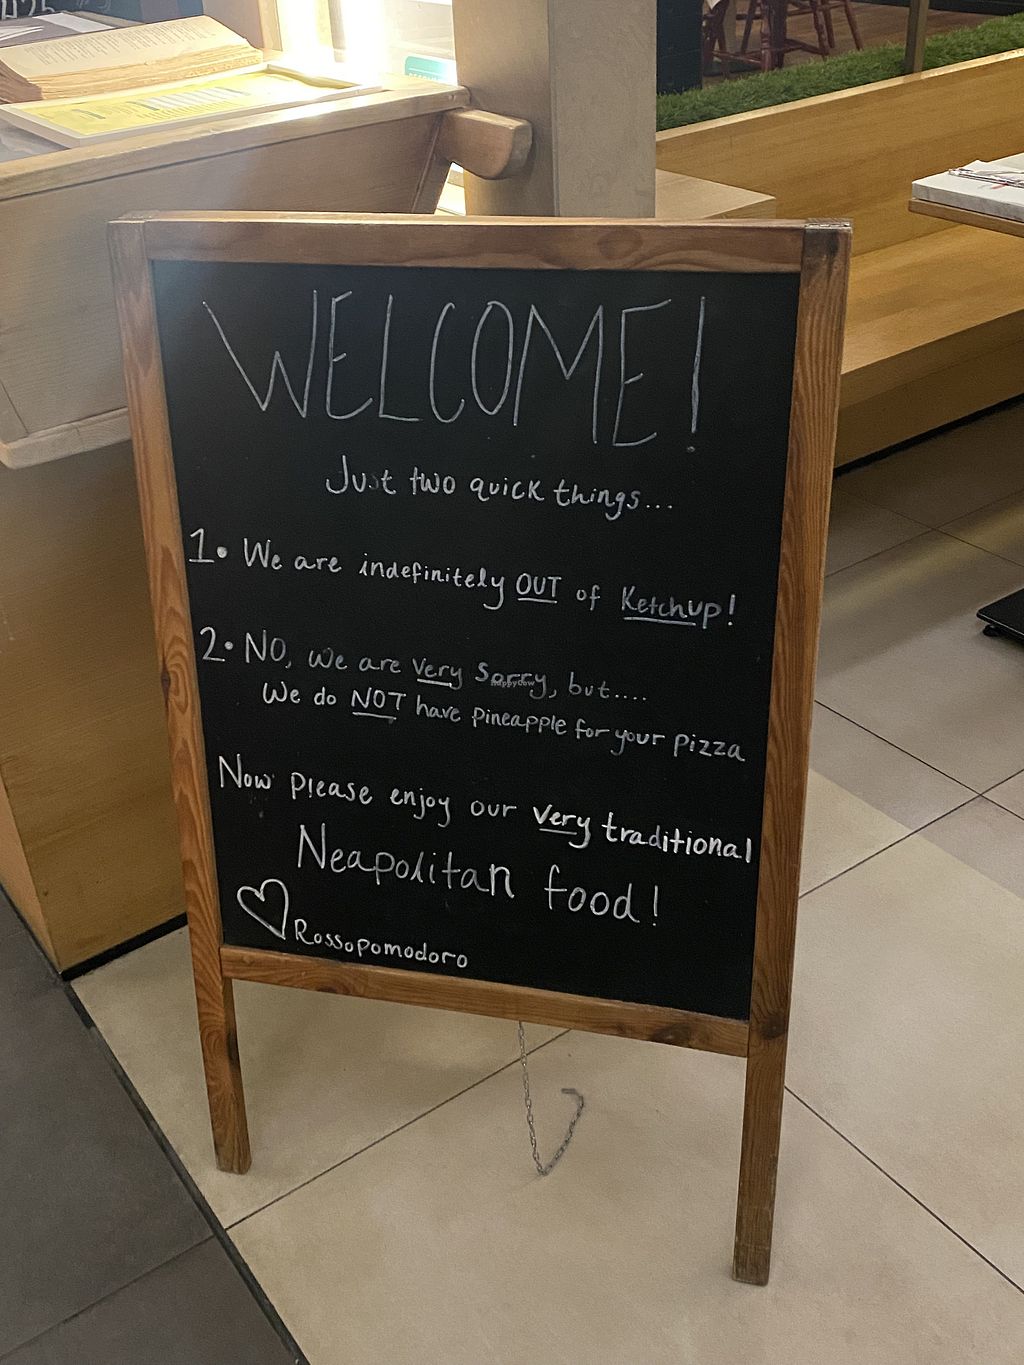 WELCOME!
Just two quick things...
1. We are indefinitely OUT of Ketchup!
2. NO, we are very sorry, but....
We do NOT have pineapple for your pizza
Now please enjoy our very traditional
Neapolitan food!
Rossopomodoro
HappyCow